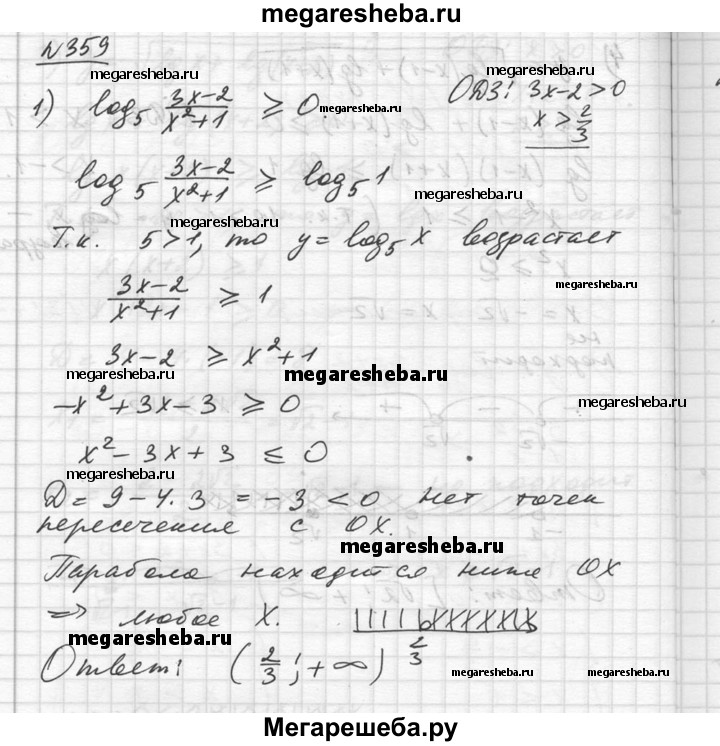 megaresheba.ru
№359
megaresheba.ru megaresheba.ru
1) log₅ (3x-2)/(x²+1) ⩾ 0. ОДЗ: 3x-2>0
megaresheba.ru
x > 2/3
log₅ (3x-2)/(x²+1) ⩾ log₅1
megaresheba.ru
megaresheba.ru
Т.к. 5>1, то y = log₅x возрастает
(3x-2)/(x²+1) ⩾ 1
megaresheba.ru
3x-2 ⩾ x²+1
megaresheba.ru megaresheba.ru
-x²+3x-3 ⩾ 0
x²-3x+3 ≤ 0
megaresheba.ru
D = 9-4·3 = -3 < 0 нет точек
пересечения с OX.
megaresheba.ru
Парабола находится ниже OX
=> любое X.
megaresheba.ru
2/3
Ответ: (2/3; +∞)
megaresheba.ru megaresheba.ru
Мегарешеба.ру